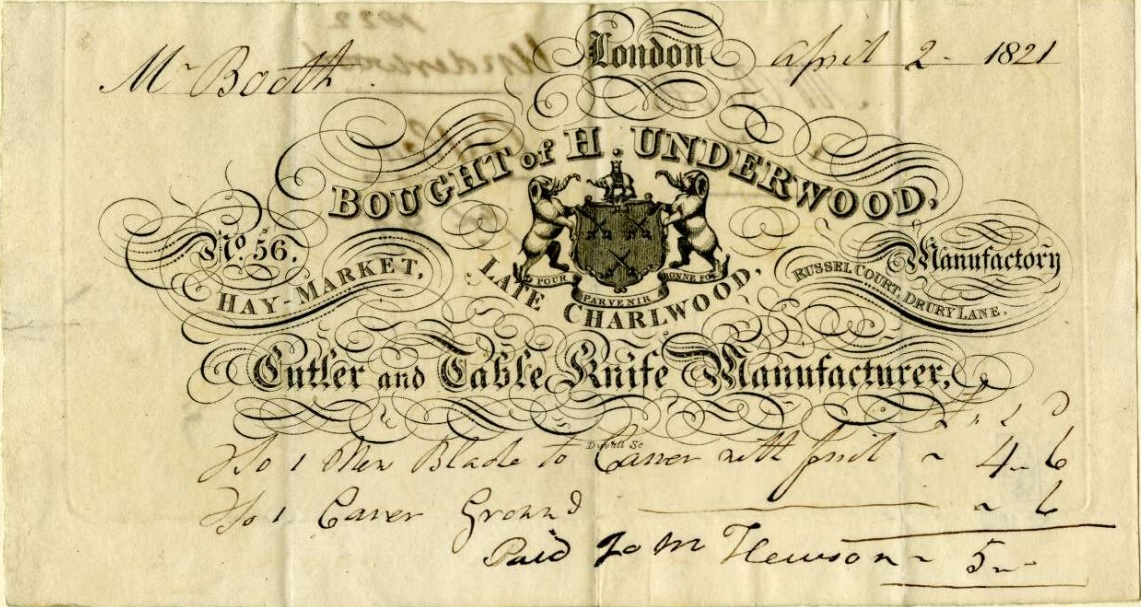 Mr Booth London april 2 - 1821
BOUGHT of H. UNDERWOOD,
No. 56. HAY-MARKET,
POUR PARVENIR BONNE FOI
LATE CHARLWOOD,
Manufactory
RUSSEL COURT, DRURY LANE.
Cutler and Table Knife Manufacturer,
£ s D
To 1 New Blade to Carver with 4 - 6
To 1 Carver Ground 6
Paid Hewson 5 -
1822
Underwood